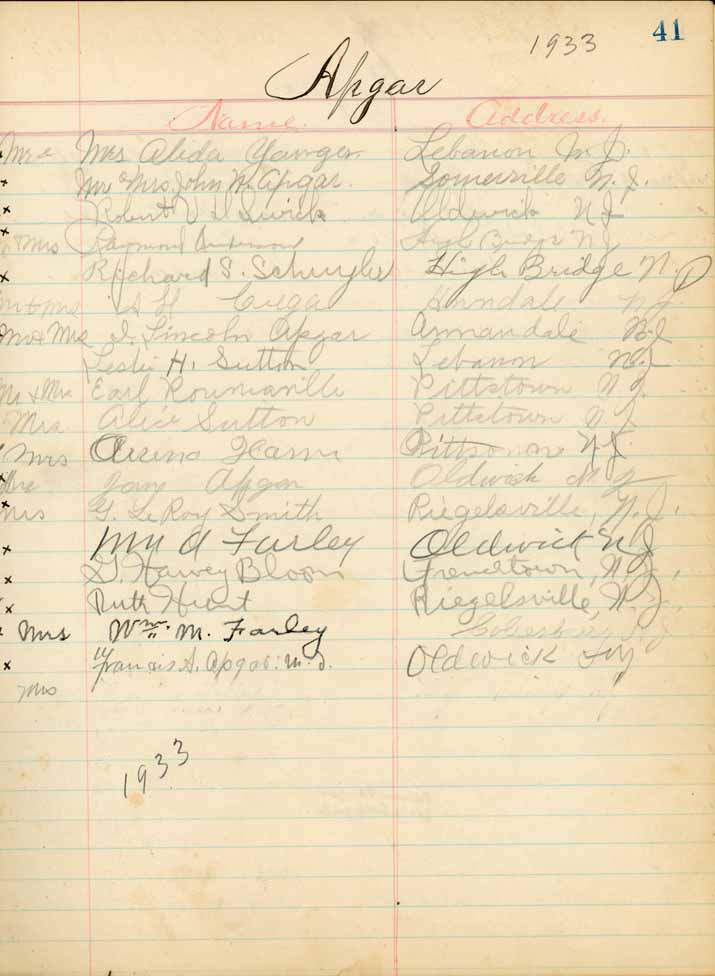 1933 41
Apgar
Name. Address.
Mr & Mrs Alida Lebanon N. J.
x Mr & Mrs John W. Apgar. Somerville N. J.
x Robert V D Oldwick N J
x Mrs Raymond Anderson High Bridge N J
x Richard S. Schuyler High Bridge N. J
Mr & Mrs A H N. J.
Mr & Mrs J. Lincoln Apgar Annandale N. J
Leslie H. Sutton Lebanon N. J
Mr & Mrs Earl Pittstown N J
Mrs Alice Sutton Pittstown N J
x Mrs N. J.
x Apgar Oldwick N J
x Mrs G. LeRoy Smith Riegelsville, N. J.
x A Farley Oldwick N J
x G. Harvey Bloom Frenchtown, N. J.,
x Ruth Hunt Riegelsville, N. J.,
x Mrs Wm. M. Farley N J
x Francis A. Apgar. M. D. Oldwick N J
Mrs
1933